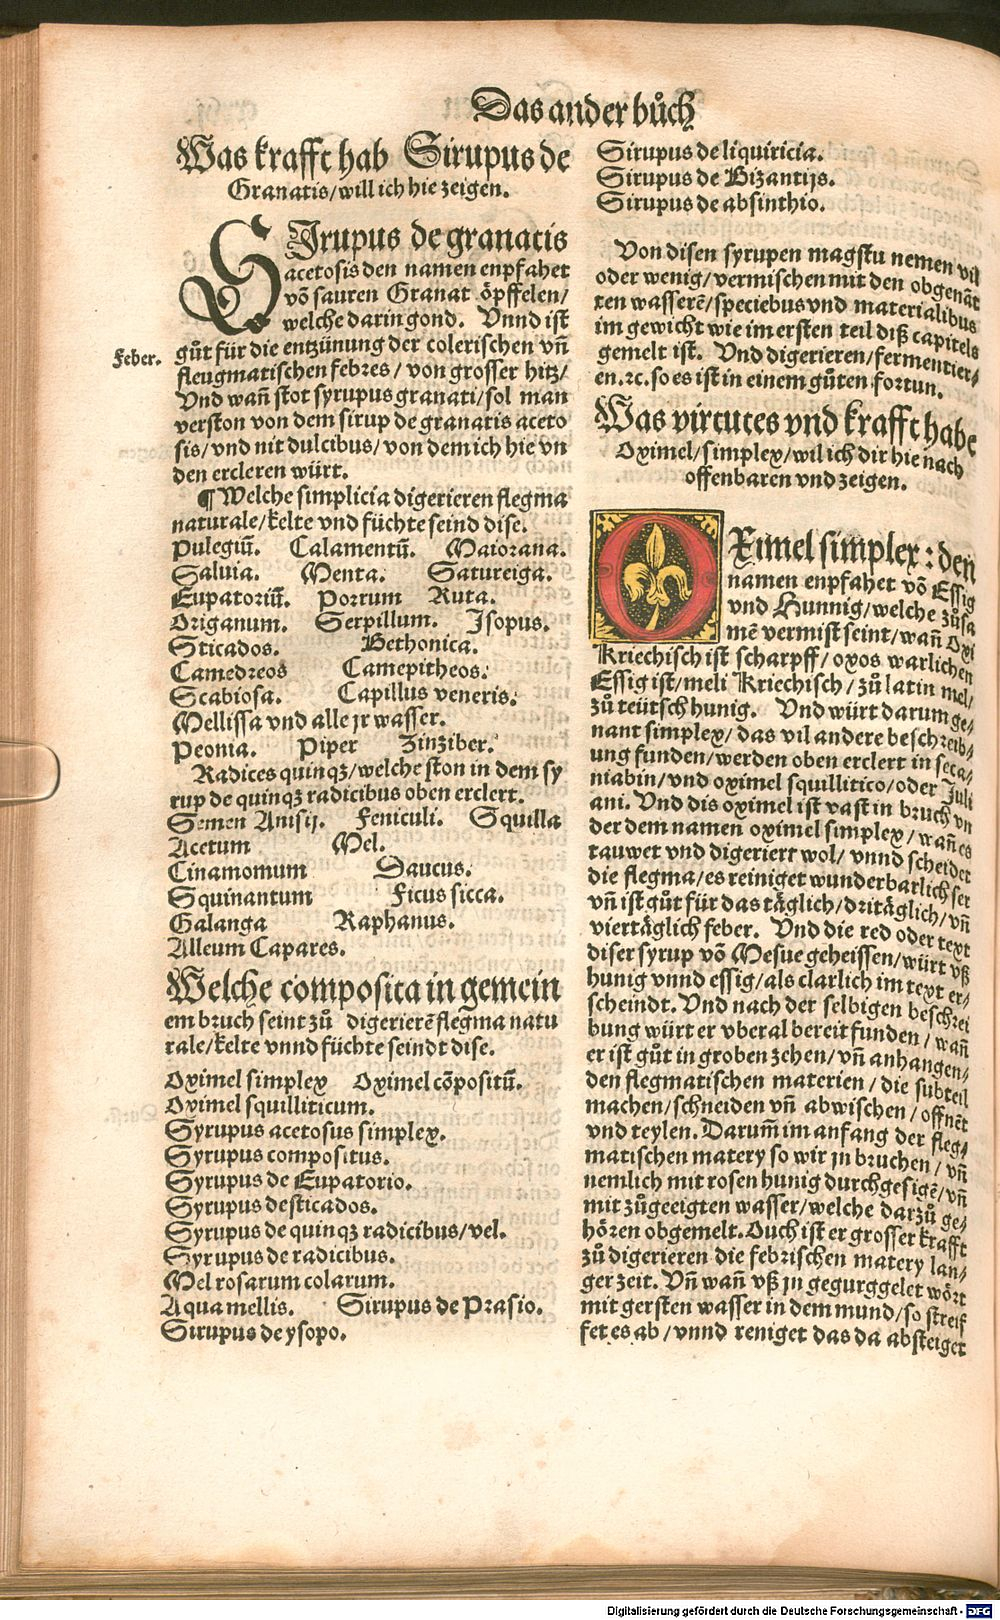 Das ander bůch
Was krafft hab Sirupus de
Granatis/will ich hie zeigen.
SJrupus de granatis
acetosis den namen enpfahet
võ sauren Granat öpffelen/
welche darin gond. Vnnd ist
Feber.
gůt für die entzünung der colerischen vñ
fleugmatischen febres/ von grosser hitz/
Vnd wañ stot syrupus granati/sol man
verston von dem sirup de granatis aceto
sis/vnd nit dulcibus/von dem ich hie vn
den ercleren würt.
¶ Welche simplicia digerieren flegma
naturale/kelte vnd füchte seind dise.
Pulegiũ. Calamentũ. Maiorana.
Saluia. Menta. Satureiga.
Eupatoriũ. Porrum Ruta.
Origanum. Serpillum. Isopus.
Sticados. Bethonica.
Camedreos Camepitheos.
Scabiosa. Capillus veneris.
Mellissa vnd alle jr wasser.
Peonia. Piper Zinziber.
Radices quinqʒ/welche ston in dem sy
rup de quinqʒ radicibus oben erclert.
Semen Anisij. Feniculi. Squilla
Acetum Mel.
Cinamomum Daucus.
Squinantum Ficus sicca.
Galanga Raphanus.
Alleum Capares.
Welche composita in gemein
em bruch seint zů digerierẽ flegma natu
rale/kelte vnnd füchte seindt dise.
Oximel simplex Oximel cõpositũ.
Oximel squilliticum.
Syrupus acetosus simplex.
Syrupus compositus.
Syrupus de Eupatorio.
Syrupus desticados.
Syrupus de quinqʒ radicibus/vel.
Syrupus de radicibus.
Mel rosarum colarum.
Aqua mellis. Sirupus de Prasio.
Sirupus de ysopo.
Sirupus de liquiricia.
Sirupus de Bizantijs.
Sirupus de absinthio.
Von disen syrupen magstu nemen vil
oder wenig/vermischen mit den obgenãt
ten wasserẽ/speciebus vnd materialibus
im gewicht wie im ersten teil diß capitels
gemelt ist. Vnd digerieren/fermentier⸗
en.⁊c. so es ist in einem gůten fortun.
Was virtutes vnd krafft habe
Oximel/simplex/wil ich dir hie nach
offenbaren vnd zeigen.
OXimel simplex: den
namen enpfahet võ Essig
vnd Hunnig/welche zůsa
mẽ vermist seint/wañ Oxi
Kriechisch ist scharpff/oxos warlichen
Essig ist/meli Kriechisch/zů latin mel/
zů teütsch hunig. Vnd würt darum ge⸗
nant simplex/das vil andere beschreib⸗
ung funden/werden oben erclert in seca⸗
niabin/vnd oximel squillitico/oder Juli
ani. Vnd dis oximel ist vast in bruch vn
der dem namen oximel simplex/wañ es
tauwet vnd digeriert wol/vnnd scheidet
die flegma/es reiniget wunderbarlich ser
vñ ist gůt für das täglich/dritäglich/vñ
viertäglich feber. Vnd die red oder text
diser syrup võ Mesue geheissen/würt vß
hunig vnnd essig/als clarlich im text er⸗
scheindt. Vnd nach der selbigen beschrei
bung würt er vberal bereit funden/wañ
er ist gůt in groben zehen/vñ anhangen⸗
den flegmatischen materien/die subteil
machen/schneiden vñ abwischen/offnẽt
vnd teylen. Darum̃ im anfang der fleg⸗
matischen matery so wir jn bruchen/vñ
nemlich mit rosen hunig durchgesigẽ/vñ
mit zůgeeigten wasser/welche darzů ge⸗
hören obgemelt. Ouch ist er grosser krafft
zů digerieren die febrischen matery lan⸗
ger zeit. Vñ wañ vß jn gegurggelet wört
mit gersten wasser in dem mund/so streif
fet es ab/vnnd reniget das da absteiget
Digitalisierung gefördert durch die Deutsche Forschungsgemeinschaft - DFG